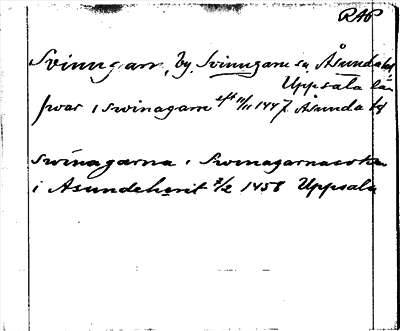 RAP
Svinngarn, by, Svinngarns sn Åsunda hd
Uppsala län
þwar i swinagarn eft 11/11 1447. Åsunda hd
swinagarna i Swinagarnasokn
i Asundehærit 7/2 1458 Uppsala